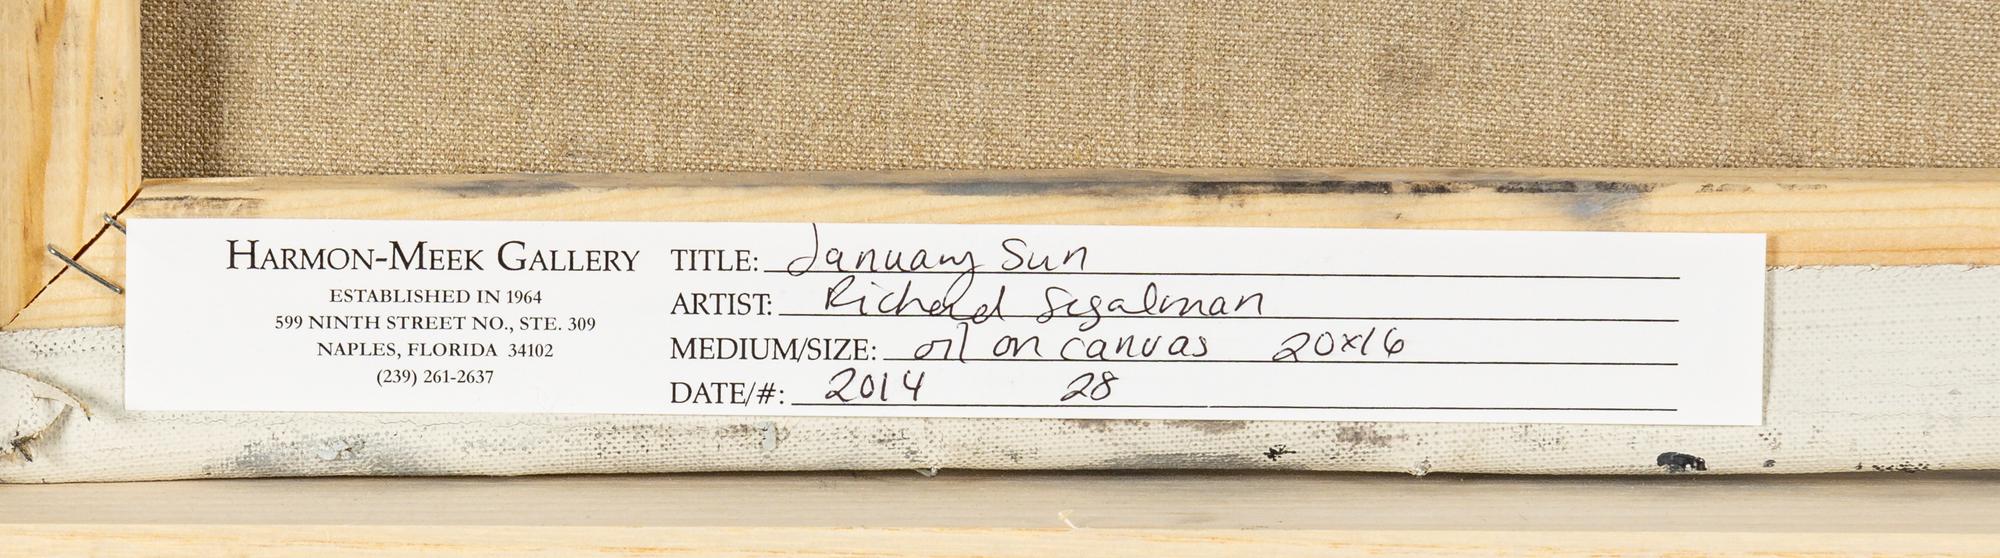 HARMON-MEEK GALLERY
ESTABLISHED IN 1964
599 NINTH STREET NO., STE. 309
NAPLES, FLORIDA 34102
(239) 261-2637
TITLE: January Sun
ARTIST: Richard Segalman
MEDIUM/SIZE: oil on canvas 20x16
DATE/#: 2014 28